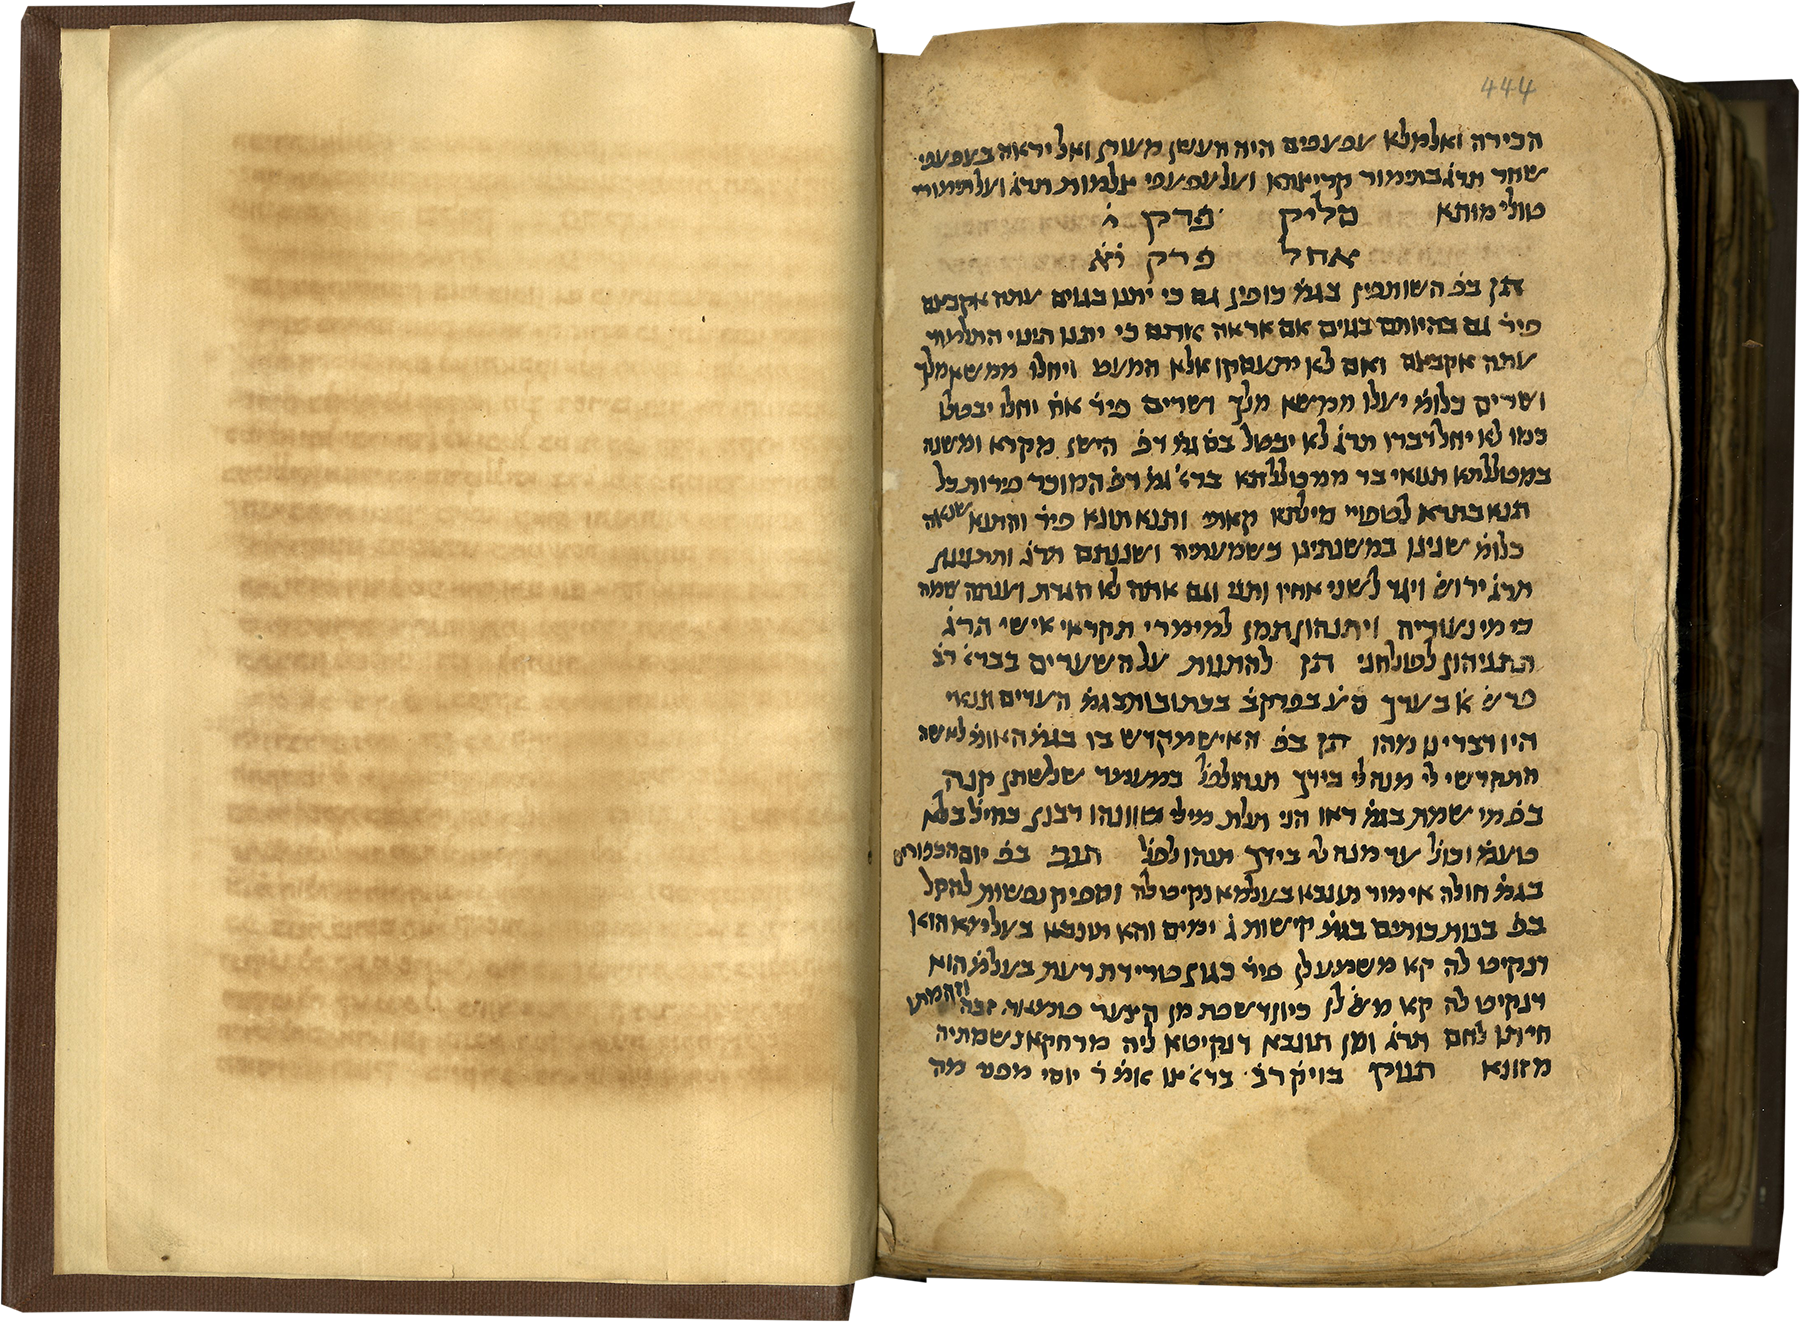 444
הבירה ואלמלא עפעפים היה העשן מעורן ואל יראה בעפעפי
שחר תרג׳ בתימור קריצתא ועל עפעפי צלמות תרג׳ ועל תימור
טולי מותא סליק פרק י׳
אחל פרק י׳א׳
תן בפ׳ השותפין בגמ׳ כופין גם כי יתנו בגוים עתה אקבצם
פיר׳ גם בהיותם בגוים אם אראה אותם כי יתנו הינוי התלמוד
עתה אקבצם ואם לא יתעסקו אלא המעט ויחלו ממשא מלך
ושרים כלומ׳ יעלו ממשא מלך ושרים פיר׳ אח׳ יחלו יבטלו
כמו לא יחל דברו תרג׳ לא יבטל בס׳ גמ׳ דפ׳ הישן מקרא ומשנה
במטללתא תנאי בר ממטללתא בר׳ג׳ גמ׳ דפ׳ המוכר פירות כל
תנא בתרא לטפויי מילתא קאתי ותנא תונא פיר׳ והתנא שנאה
כלומ׳ שנינו במשנתינו כשמעתיה ושננתם תרג׳ ותתנינון
תרג׳ ירוש׳ ויגד לשני אחיו ותני וגם אתה לא הגדת וענתה שמה
כימי נעוריה ויתנהון תמן למימרי תקראי אישי תרג׳
התניהון לטולחני תן להתנות על השערים בבר׳ רב׳
פרש׳ א׳ בערך סע בפרק ב׳ בכתובות בגמ׳ העדים תנאי
היו דברינו מהו תן בפ׳ האיש מקדש בו בגמ׳ האומ׳ לאשה
התקדשי לי מנה לי בידך תנהו לפל׳ במעמד שלשתן קנה
בפ׳ מי שמת בגמ׳ דאו הני תלת מילי שוונהו רבנן כהיל׳ בלא
טעמ׳ וכול׳ עד מנה לי בידך תנהו לפל׳ תנב בפ׳ יום הכפורים
בגמ׳ חולה אימור תונבא בעלמא נקיט לה וספיק נפשות להקל
בפ׳ בנות כותים בגמ׳ קישות ג׳ ימים והא תונבא בעלימא הואן
דנקיט לה קא משמע לן פיר׳ כגון טרידת דעת בעלמ׳ הוא
דנקיט לה קא מש׳ לן כיון דשפת מן הצער טומאה זבה וזהמתו
חייתו לחם תרג׳ ומן תונבא דנקיטא ליה מרחקא נשמתיה
מזונא תנוך בויק׳ רב׳ בר׳ ינו אומ׳ ר׳ יוסי מפט מה